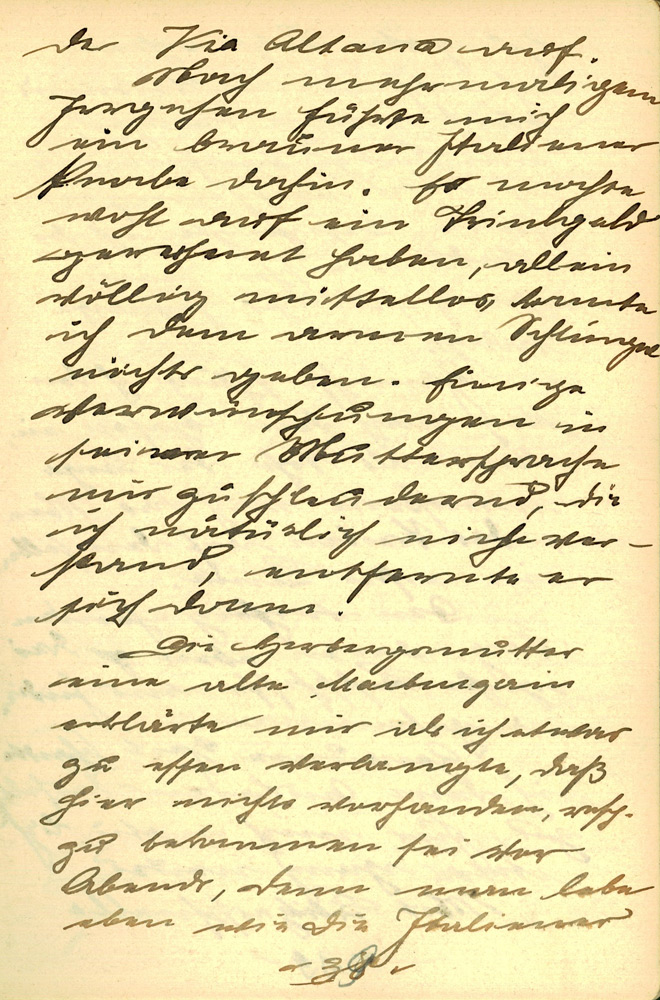 der Via Altana auf.
Nach mehrmaligem
Irrgehen führte mich
ein brauner Italiener
Knabe dahin. Er mochte
wohl auf ein Trinkgeld
gerechnet haben, allein
völlig mittellos, konnte
ich dem armen Schlingel
nichts geben. Einige
Verwünschungen in
seiner Muttersprache
mir zuschleudernd, die
ich natürlich nicht ver-
stand, entfernte er
sich dann.
Die Herbergsmutter
eine alte Marburgerin
erklärte mir als ich etwas
zu essen verlangte, daß
hier nichts vorhanden, resp.
zu bekommen sei vor
Abends, denn man lebe
eben wie die Italiener
- 38 -